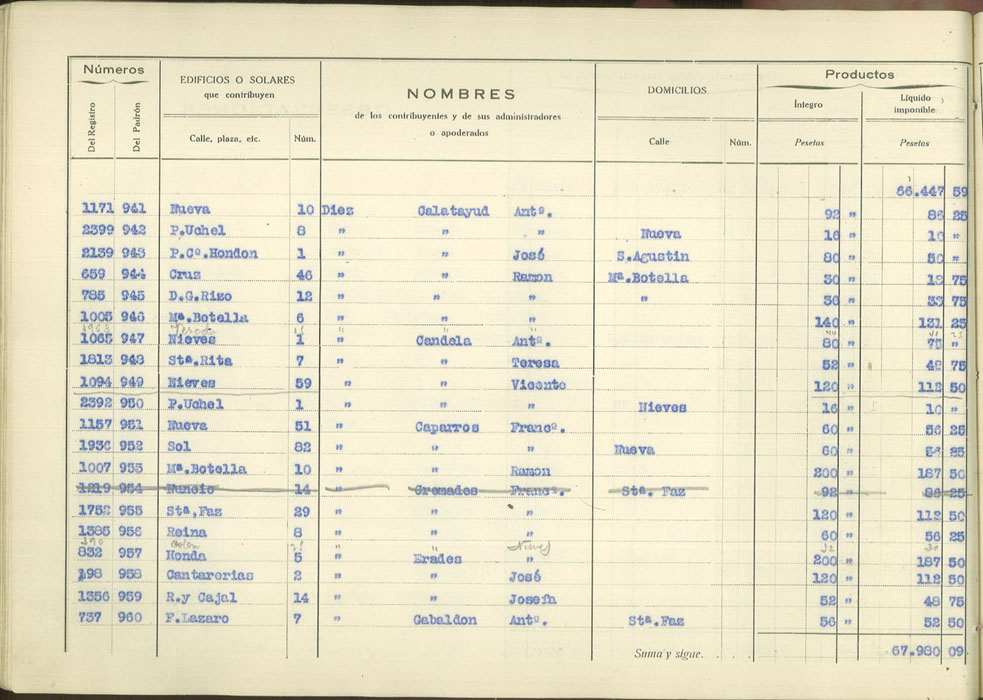 Números EDIFICIOS O SOLARES que contribuyen NOMBRES de los contribuyentes y de sus administradores o apoderados DOMICILIOS Productos
Íntegro Líquido imponible
Del Registro Del Padrón Calle, plaza, etc. Núm. Calle Núm. Pesetas Pesetas
66.447 59
1171 941 Nueva 10 Diez Calatayud Antº. 92 " 86 25
2399 942 P.Uchel 8 " " " Nueva 16 " 10 "
2139 943 P.Cº.Hondon 1 " " José S.Agustin 80 " 50 "
659 944 Cruz 46 " " Ramon Mª.Botella 30 " 75
785 945 D.G.Rizo 12 " " " " " 75
1005 946 Mª.Botella 6 " " " 140 " 131 25
1065 947 Nieves 1 " Candela Antº. 80 " 75 "
1813 948 Stª.Rita 7 " " Teresa 52 " 48 75
1094 949 Nieves 59 " " Vicente 120 " 112 50
2392 950 P.Uchel 1 " " " Nieves 16 " 10 "
1157 951 Nueva 51 " Caparros Francº. 60 " 56 25
1936 952 Sol 82 " " " Nueva 60 " 56
1007 953 Mª.Botella 10 " " Ramon 200 " 187 50
1219 954 Nuncio 14 " Cremades Francº. Stª. Faz 92 " 86 25
1752 955 Stª,Faz 29 " " " 120 " 112 50
1385 956 Reina 8 " " " 60 " 56 25
390 Nieves
832 957 Honda 5 " Erades " 200 " 187 50
198 958 Cantarerias 2 " " José 120 " 112 50
1356 959 R.y Cajal 14 " " Josefa 52 " 48 75
737 960 F.Lazaro 7 " Gabaldon Antº. Stª.Faz 56 " 52 50
Suma y sigue. 67.980 09